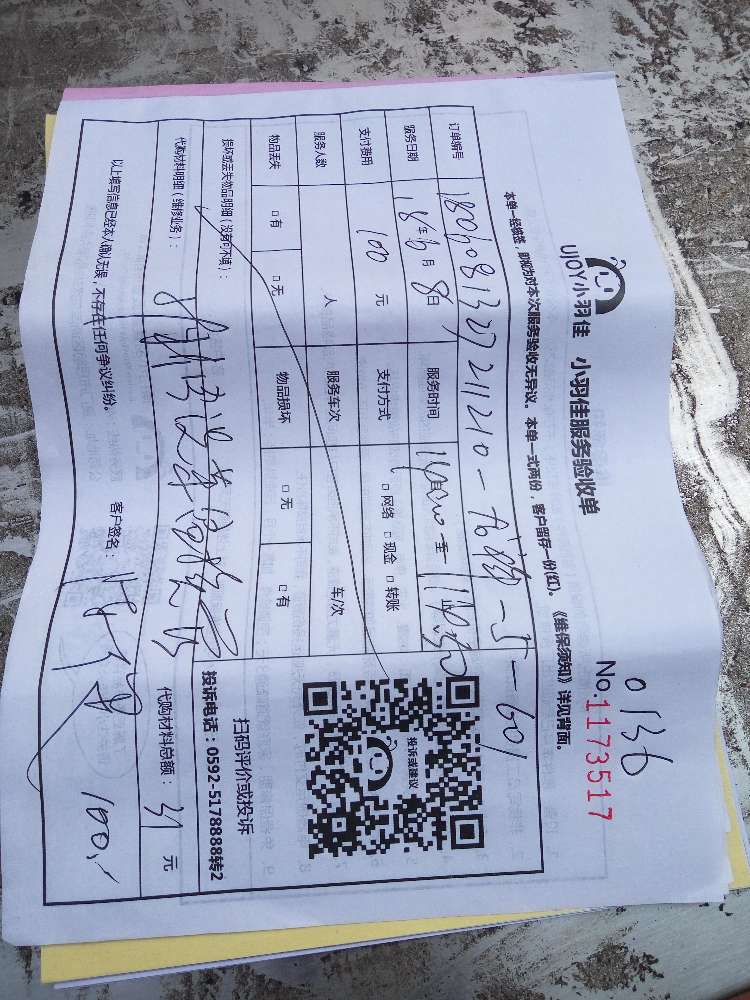 0136
No.1173517
UJOY小羽佳 小羽佳服务验收单
本单一经签署，即视为对本次服务验收无异议。本单一式两份，客户留存一份(红)。《维保须知》详见背面。
订单编号 180608132721210-
-5-601
服务日期 18年6月8日 服务时间 至
支付费用 100元 支付方式 □网络 □现金 □转账
服务人数 人 服务车次 车/次
物品丢失 □有 □无 物品损坏 □无 □有
投诉或建议
扫码评价或投诉
投诉电话：0592-5178888转2
损坏或丢失物品明细（没有可不填）：
代购材料明细（维修业务）： 代购材料总额： 元
以上填写信息已经本人确认无误，不存在任何争议纠纷。 客户签名：
100.